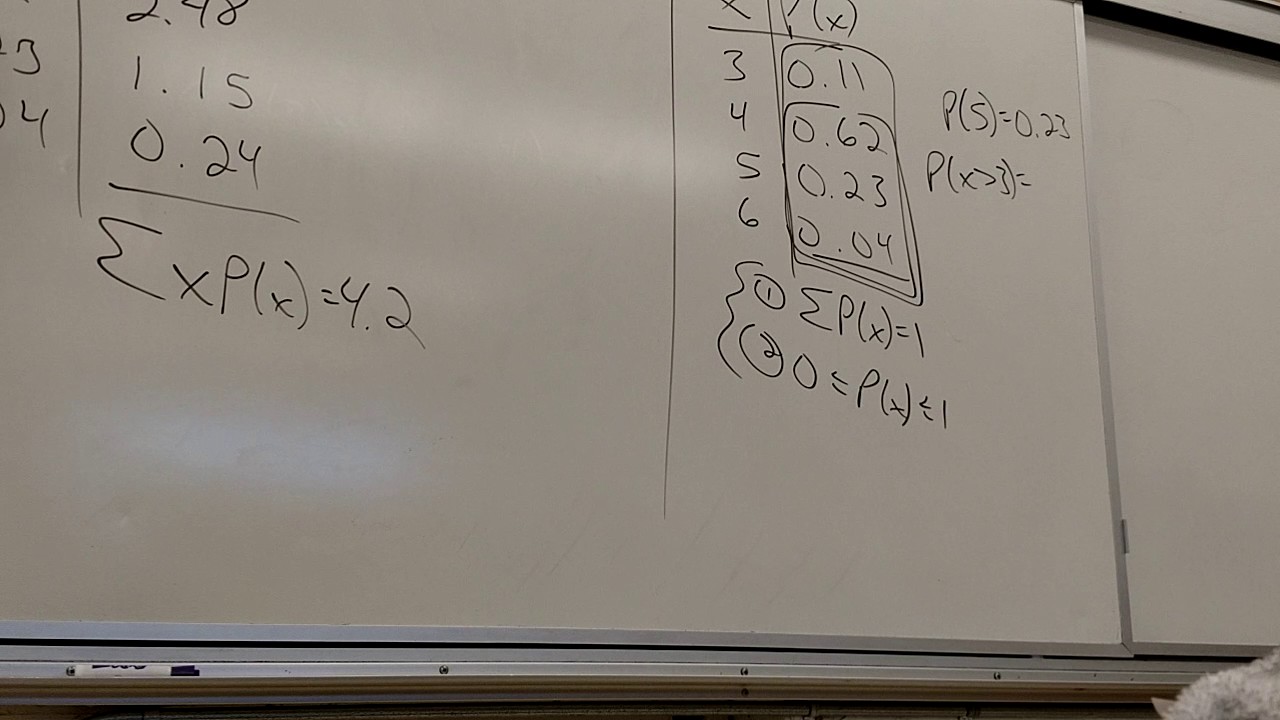 2.48
23 1.15
04 0.24
Σ xP(x)=4.2
x P(x)
3 0.11
4 0.62
5 0.23
6 0.04
P(5)=0.23
P(x>3)=
① ΣP(x)=1
② 0≤P(x)≤1